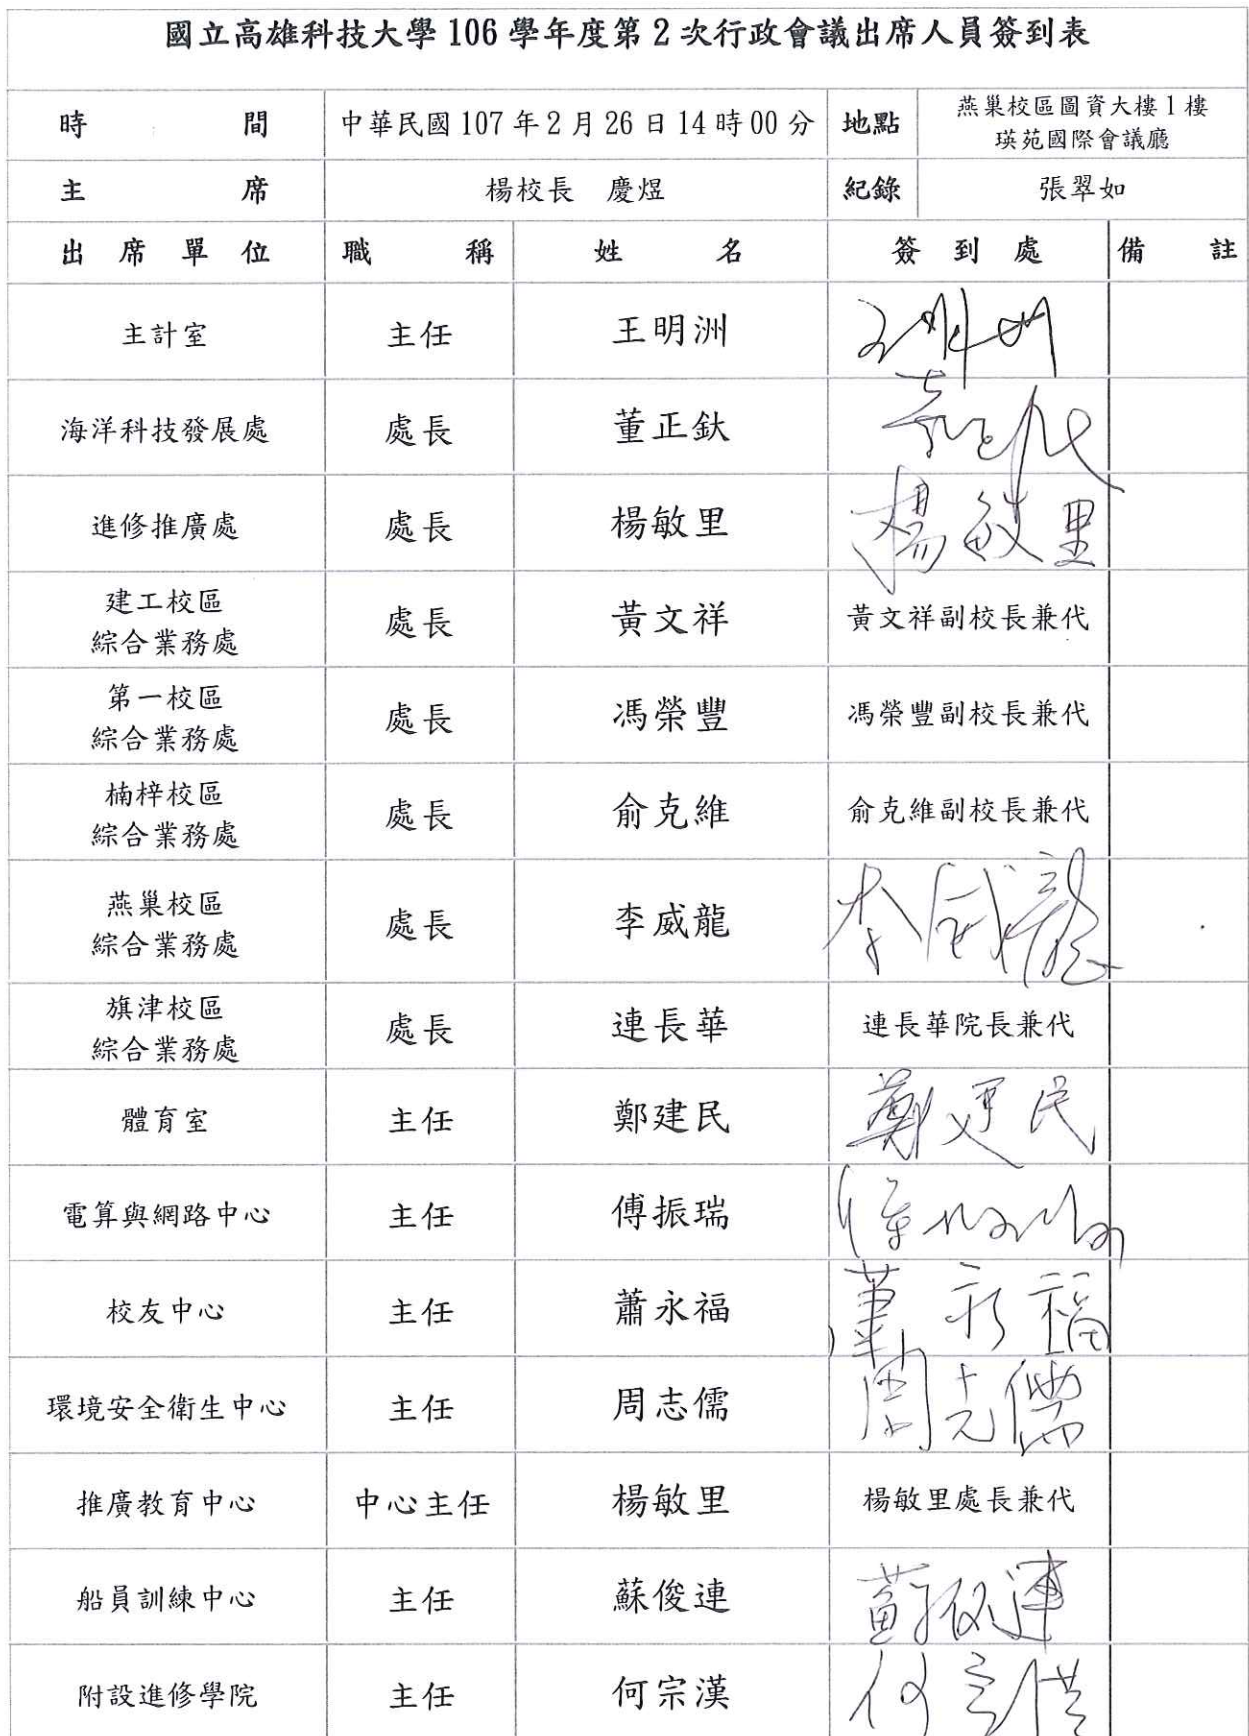 國立高雄科技大學 106 學年度第 2 次行政會議出席人員簽到表
時 間 中華民國 107 年 2 月 26 日 14 時 00 分 地點 燕巢校區圖資大樓 1 樓
瑛苑國際會議廳
主 席 楊校長 慶煜 紀錄 張翠如
出 席 單 位 職 稱 姓 名 簽 到 處 備 註
主計室 主任 王明洲 王明洲
海洋科技發展處 處長 董正釱 董正釱
進修推廣處 處長 楊敏里 楊敏里
建工校區
綜合業務處 處長 黃文祥 黃文祥副校長兼代
第一校區
綜合業務處 處長 馮榮豐 馮榮豐副校長兼代
楠梓校區
綜合業務處 處長 俞克維 俞克維副校長兼代
燕巢校區
綜合業務處 處長 李威龍 李威龍
旗津校區
綜合業務處 處長 連長華 連長華院長兼代
體育室 主任 鄭建民 鄭建民
電算與網路中心 主任 傅振瑞 傅振瑞
校友中心 主任 蕭永福 蕭永福
環境安全衛生中心 主任 周志儒 周志儒
推廣教育中心 中心主任 楊敏里 楊敏里處長兼代
船員訓練中心 主任 蘇俊連 蘇俊連
附設進修學院 主任 何宗漢 何宗漢